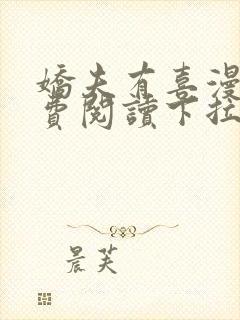 嬌夫有喜漫
費閱讀下拉
晨芙